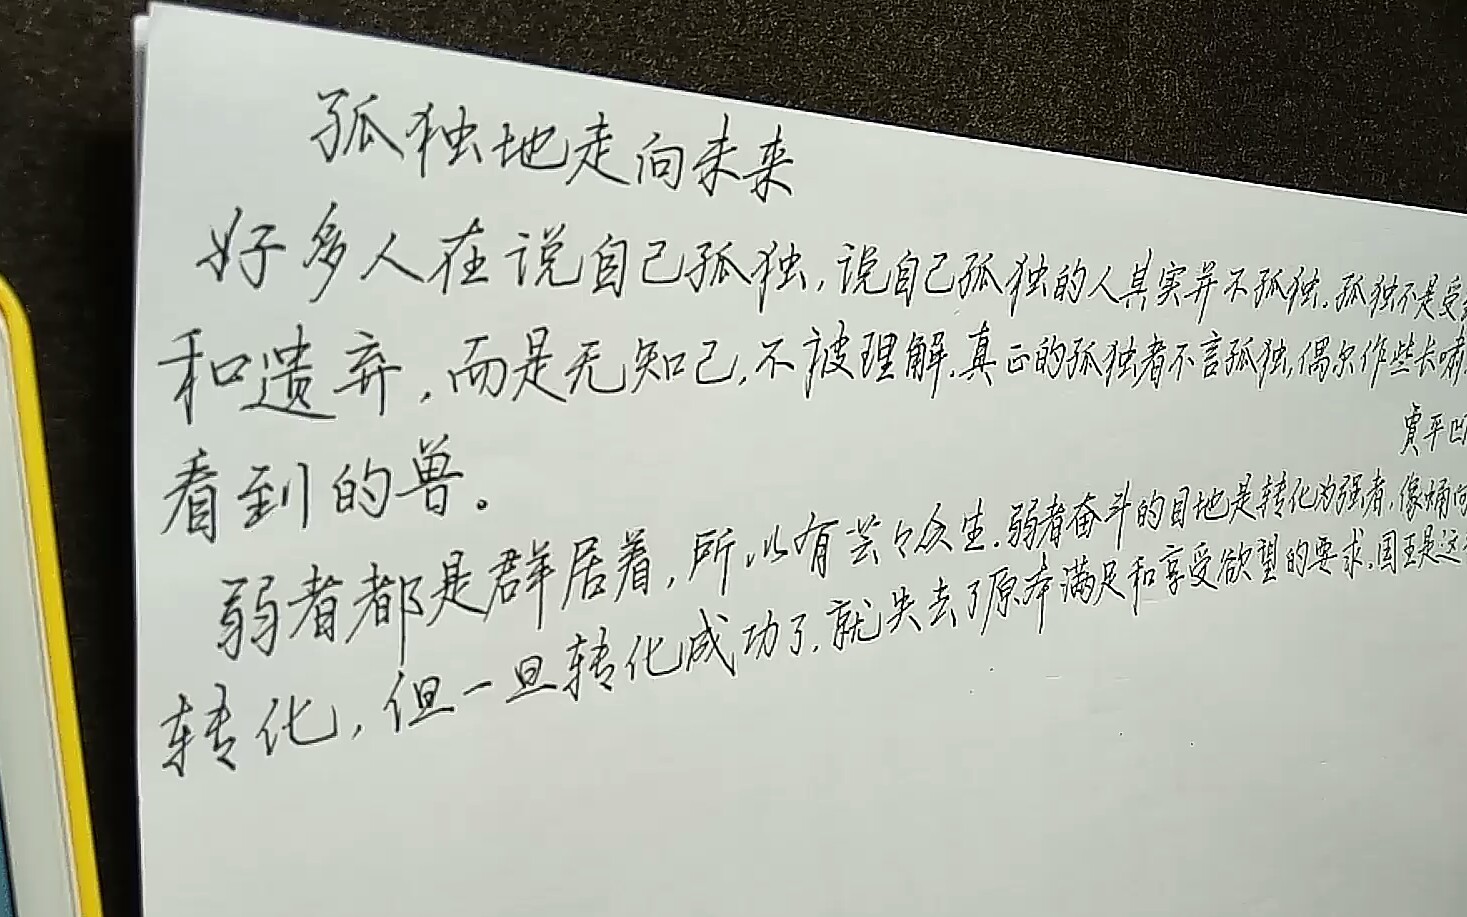 孤独地走向未来
好多人在说自己孤独,说自己孤独的人其实并不孤独.孤独不是受
和遗弃,而是无知己,不被理解.真正的孤独者不言孤独,偶尔作些长啸
贾平凹
看到的兽。
弱者都是群居着,所以有芸々众生.弱者奋斗的目地是转化为强者,像蛹向
转化,但一旦转化成功了.就失去了原本满足和享受欲望的要求.国王是这